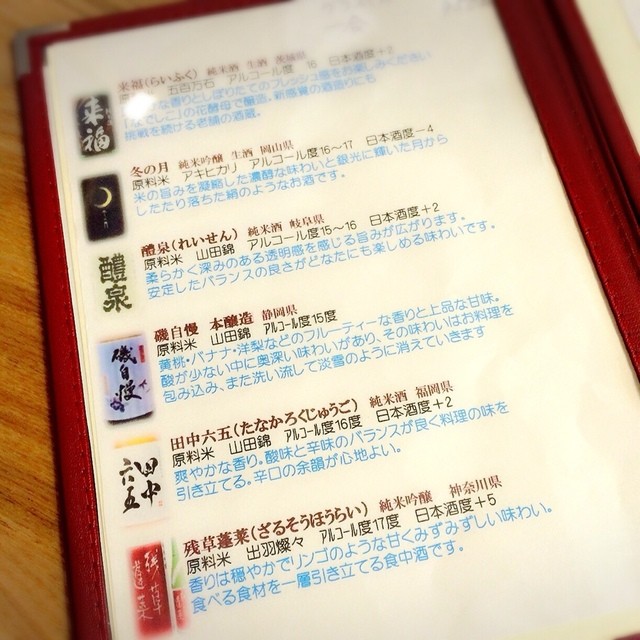 来福(らいふく) 純米酒 生酒 茨城県
五百万石 アルコール度 16 日本酒度+2
な香りとしぼりたてのフレッシュ感をお楽しみください
「なでしこ」の花酵母で醸造。新感覚の酒造りにも
挑戦を続ける老舗の酒蔵。
来福
冬の月 純米吟醸 生酒 岡山県
原料米 アキヒカリ アルコール度16〜17 日本酒度−4
米の旨みを凝縮した濃醇な味わいと銀光に輝いた月から
したたり落ちた絹のようなお酒です。
醴泉(れいせん) 純米酒 岐阜県
原料米 山田錦 アルコール度15〜16 日本酒度+2
柔らかく深みのある透明感を感じる旨みが広がります。
安定したバランスの良さがどなたにも楽しめる味わいです。
醴泉
磯自慢 本醸造 静岡県
原料米 山田錦 アルコール度15度
黄桃・バナナ・洋梨などのフルーティーな香りと上品な甘味。
酸が少ない中に奥深い味わいがあり、その味わいはお料理を
包み込み、また洗い流して淡雪のように消えていきます
磯自慢
田中六五(たなかろくじゅうご) 純米酒 福岡県
原料米 山田錦 アルコール度16度 日本酒度+2
爽やかな香り。酸味と辛味のバランスが良く料理の味を
引き立てる。辛口の余韻が心地よい。
田中
六五
残草蓬莱(ざるそうほうらい) 純米吟醸 神奈川県
原料米 出羽燦々 アルコール度17度 日本酒度+5
香りは穏やかでリンゴのような甘くみずみずしい味わい。
食べる食材を一層引き立てる食中酒です。
残草
蓬莱